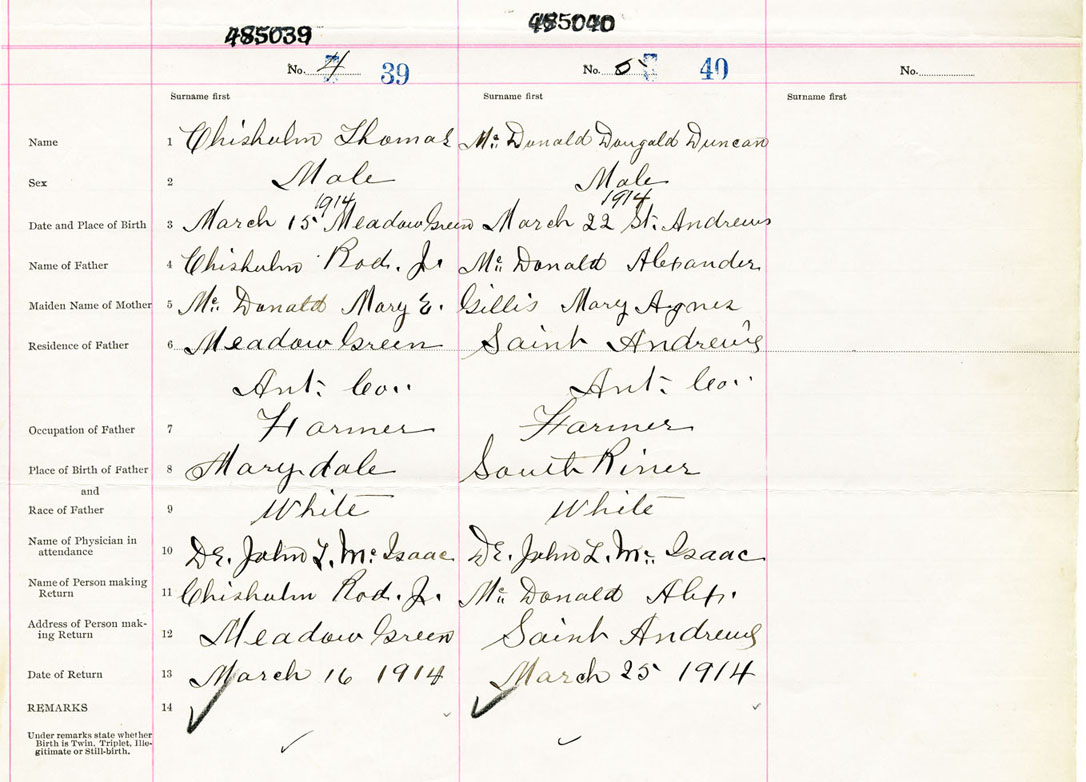 485039 485040
No. 4 39 No. 5 40 No.
Surname first Surname first Surname first
Name 1 Chisholm Thomas Mc Donald Dougald Duncan
Sex 2 Male Male
1914 1914
Date and Place of Birth 3 March 15 Meadow Green March 22 St. Andrews
Name of Father 4 Chisholm Rod. J. Mc Donald Alexander
Maiden Name of Mother 5 Mc Donald Mary E. Gillis Mary Agnes
Residence of Father 6 Meadow Green Saint Andrew's
Ant. Co. Ant. Co.
Occupation of Father 7 Farmer Farmer
Place of Birth of Father 8 Marydale South River
and
Race of Father 9 White White
Name of Physician in
attendance 10 Dr. John L. Mc Isaac Dr. John L. Mc Isaac
Name of Person making
Return 11 Chisholm Rod. J. Mc Donald Alex.
Address of Person mak-
ing Return 12 Meadow Green Saint Andrews
Date of Return 13 March 16 1914 March 25 1914
REMARKS 14
Under remarks state whether
Birth is Twin, Triplet, Ille-
gitimate or Still-birth.